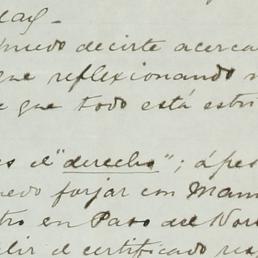 puedo decirte acerca
que reflexionando
e que todo está
es el "derecho"; á pes
uedo forjar con Mam
tro en Paso del Nor
el certificado